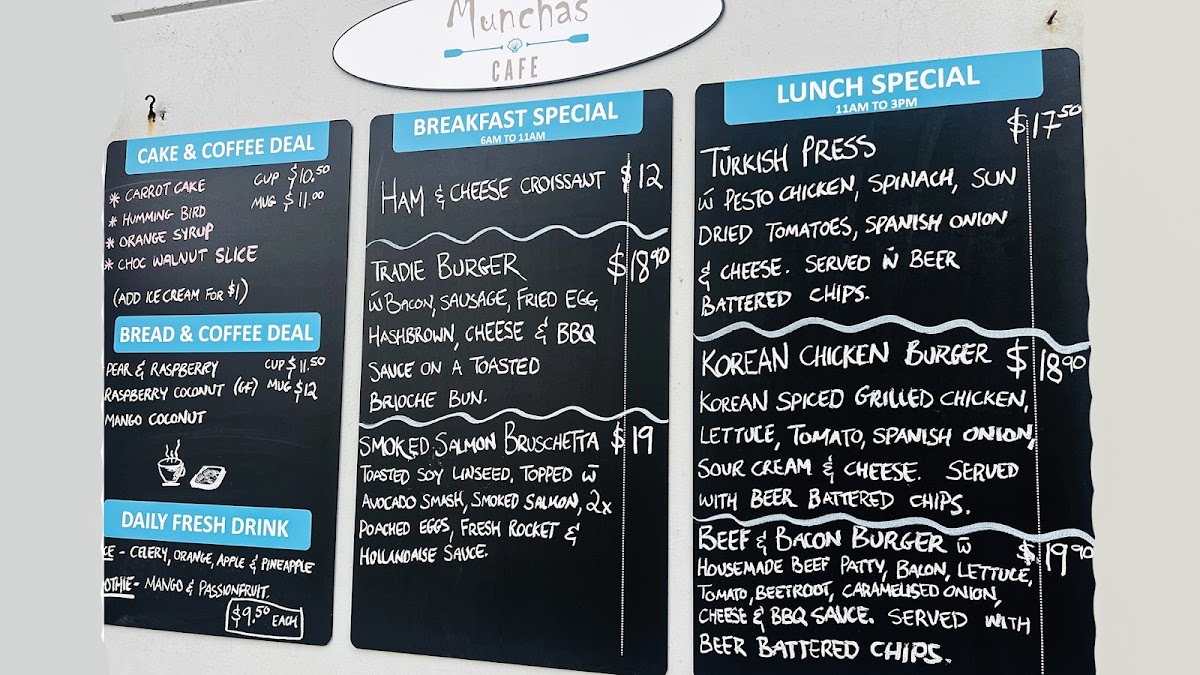 Munchas
CAFE
CAKE & COFFEE DEAL
* CARROT CAKE CUP $10.50
* HUMMING BIRD MUG $11.00
* ORANGE SYRUP
* CHOC WALNUT SLICE
(ADD ICE CREAM FOR $1)
BREAD & COFFEE DEAL
PEAR & RASPBERRY CUP $11.50
RASPBERRY COCONUT (GF) MUG $12
MANGO COCONUT
DAILY FRESH DRINK
- CELERY, ORANGE, APPLE & PINEAPPLE
- MANGO & PASSIONFRUIT.
$9.50 EACH
BREAKFAST SPECIAL
6AM TO 11AM
HAM & CHEESE CROISSAUT $12
TRADIE BURGER $18.90
W BACON, SAUSAGE, FRIED EGG,
HASHBROWN, CHEESE & BBQ
SAUCE ON A TOASTED
BRIOCHE BUN.
SMOKED SALMON BRUSCHETTA $19
TOASTED SOY LINSEED, TOPPED W
AVOCADO SMASH, SMOKED SALMON, 2x
POACHED EGGS, FRESH ROCKET &
HOLLANDAISE SAUCE.
LUNCH SPECIAL
11AM TO 3PM
TURKISH PRESS $17.50
W PESTO CHICKEN, SPINACH, SUN
DRIED TOMATOES, SPANISH ONION
& CHEESE. SERVED W BEER
BATTERED CHIPS.
KOREAN CHICKEN BURGER $18.90
KOREAN SPICED GRILLED CHICKEN,
LETTUCE, TOMATO, SPANISH ONION,
SOUR CREAM & CHEESE. SERVED
WITH BEER BATTERED CHIPS.
BEEF & BACON BURGER W $19.90
HOUSEMADE BEEF PATTY, BACON, LETTUCE,
TOMATO, BEETROOT, CARAMELISED ONION,
CHEESE & BBQ SAUCE. SERVED WITH
BEER BATTERED CHIPS.